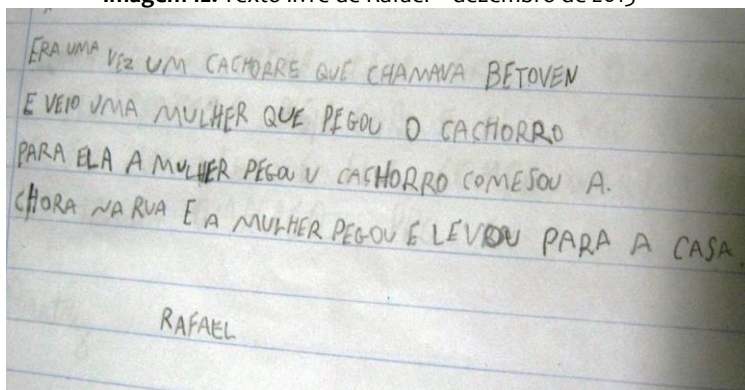 Imagem 12. Texto livre de Rafael – dezembro de 2015
ERA UMA VEZ UM CACHORRE QUE CHAMAVA BETOVEN
E VEIO UMA MULHER QUE PEGOU O CACHORRO
PARA ELA A MULHER PEGOU U CACHORRO COMESOU A.
CHORA NA RUA E A MULHER PEGOU E LEVOU PARA A CASA.
RAFAEL